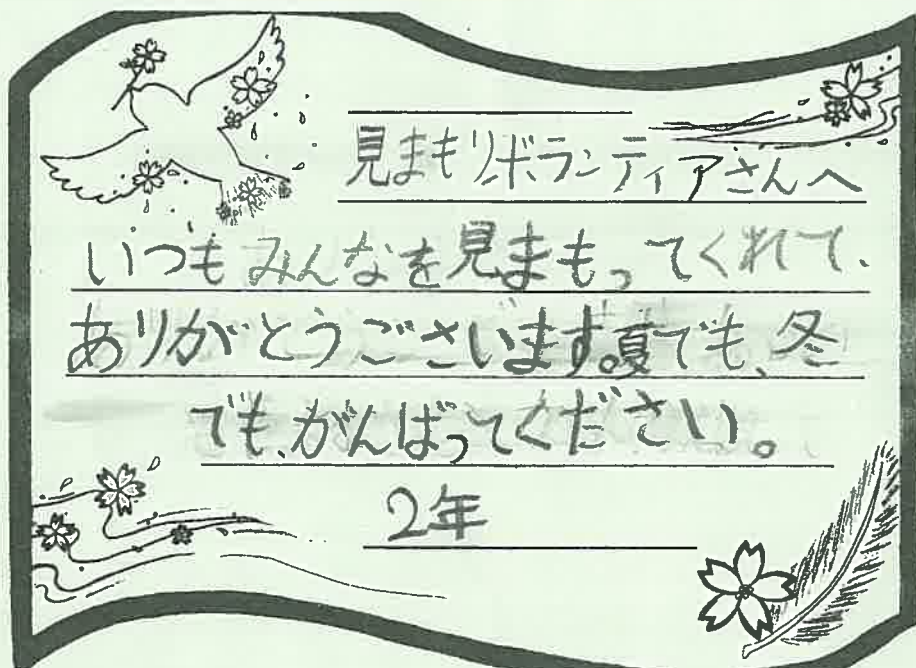 見まもりボランティアさんへ
いつもみんなを見まもってくれて、
ありがとうございます。夏でも、冬
でも、がんばってください。
2年